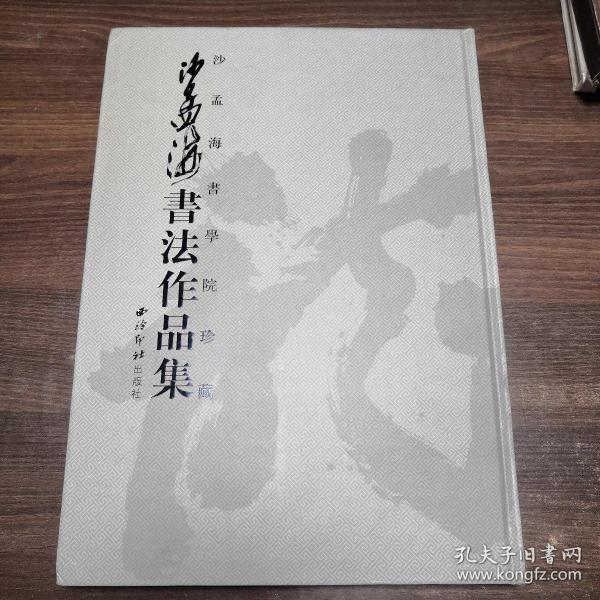 沙孟海書學院珍藏
沙孟海書法作品集
西泠印社出版社
孔夫子旧書网
www.kongfz.com